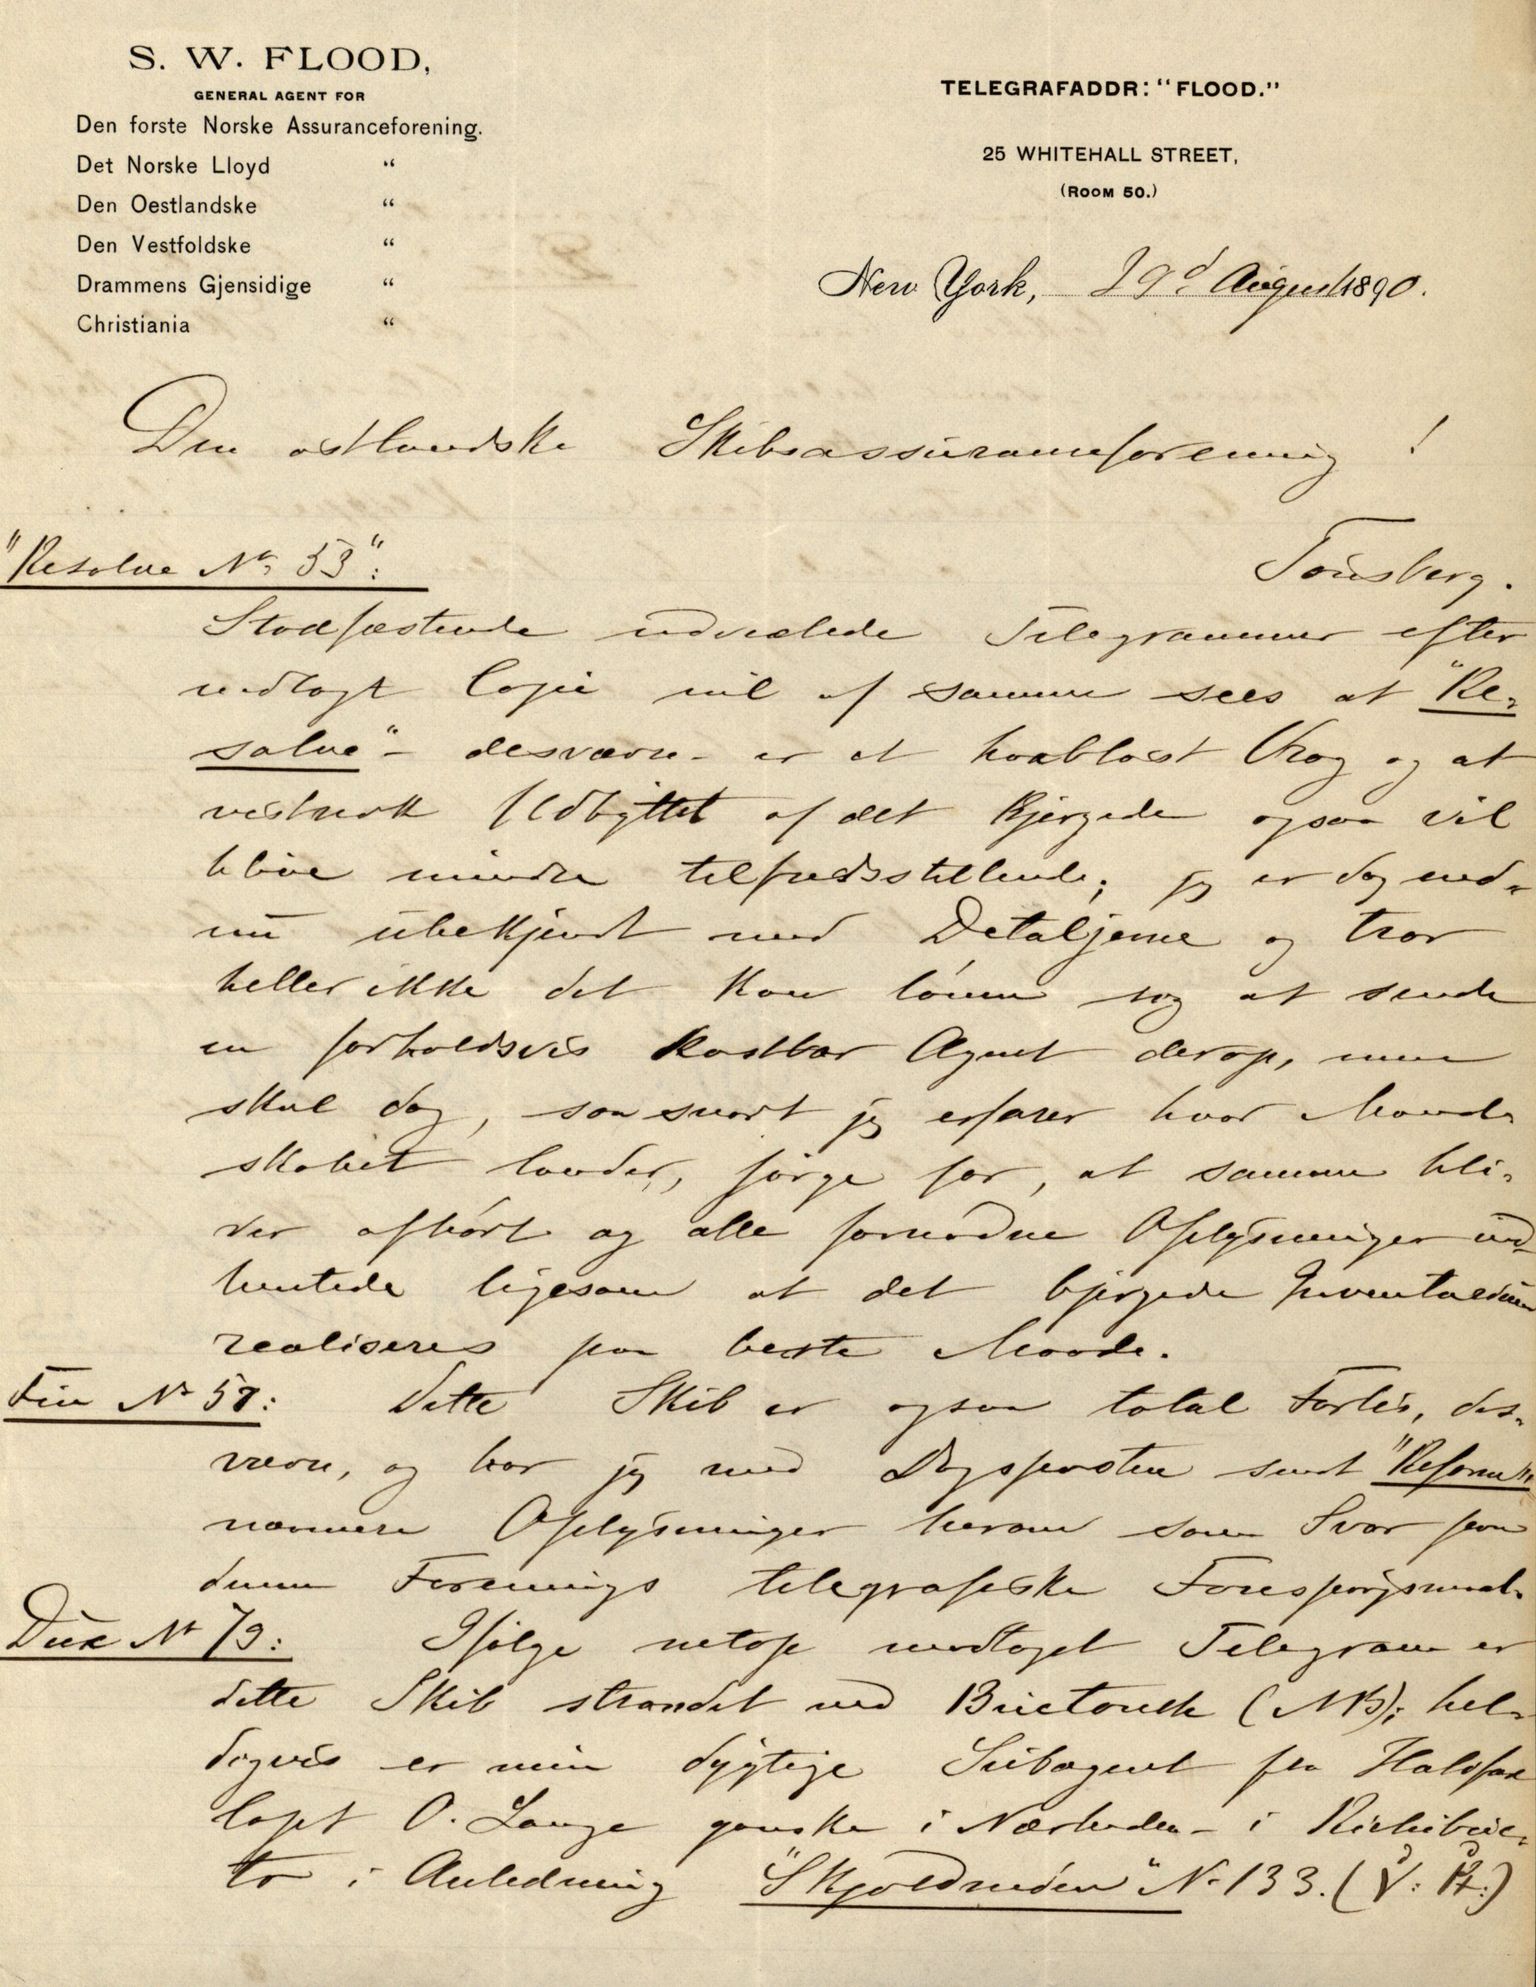 S. W. FLOOD,
GENERAL AGENT FOR
Den forste Norske Assuranceforening.
Det Norske Lloyd "
Den Oestlandske "
Den Vestfoldske "
Drammens Gjensidige "
Christiania "
TELEGRAFADDR: "FLOOD."
25 WHITEHALL STREET,
(ROOM 50.)
New York, 29d August 1890.
Den østlandske Skibsassuranceforening!
Tønsberg.
"Resolve No 53":
Stadfæstende udvexlede Telegrammer efter
vedlagt Copie vil af samme sees at "Re-
solve" – desværre – er et haabløst Vrag og at
Udbyttet af det Bjergede ogsaa vil
blive mindre tilfredsstillende; jeg er dog end-
nu ubekjendt med Detaljerne og tror
heller ikke det kan lønne sig at sende
en forholdsvis kostbar Agent derop, men
skal dog, saa snart jeg erfarer hvor Mand-
skabet lander, sørge for, at samme bli-
ver afhørt og alle fornødne Oplysninger ind-
hentede ligesom at det bjergede Inventarium
realiseres paa beste Maade.
Fin No 57: Dette Skib er ogsaa total Forlis, des-
værre, og har jeg med Dagsposten sendt "Reform"
nærmere Oplysninger herom som Svar paa
denne Forenings telegrafiske Forespørgsmaal.
Dux No 79: Ifølge netop modtaget Telegram er
dette Skib strandet ved Buctouche (NB); hel-
digvis er min dygtige Subagent fra Halifax
Capt O. Lange ganske i Nærheden – i Richibuc-
to i Anledning "Skjoldmøen" No 133. (V: Pt:)